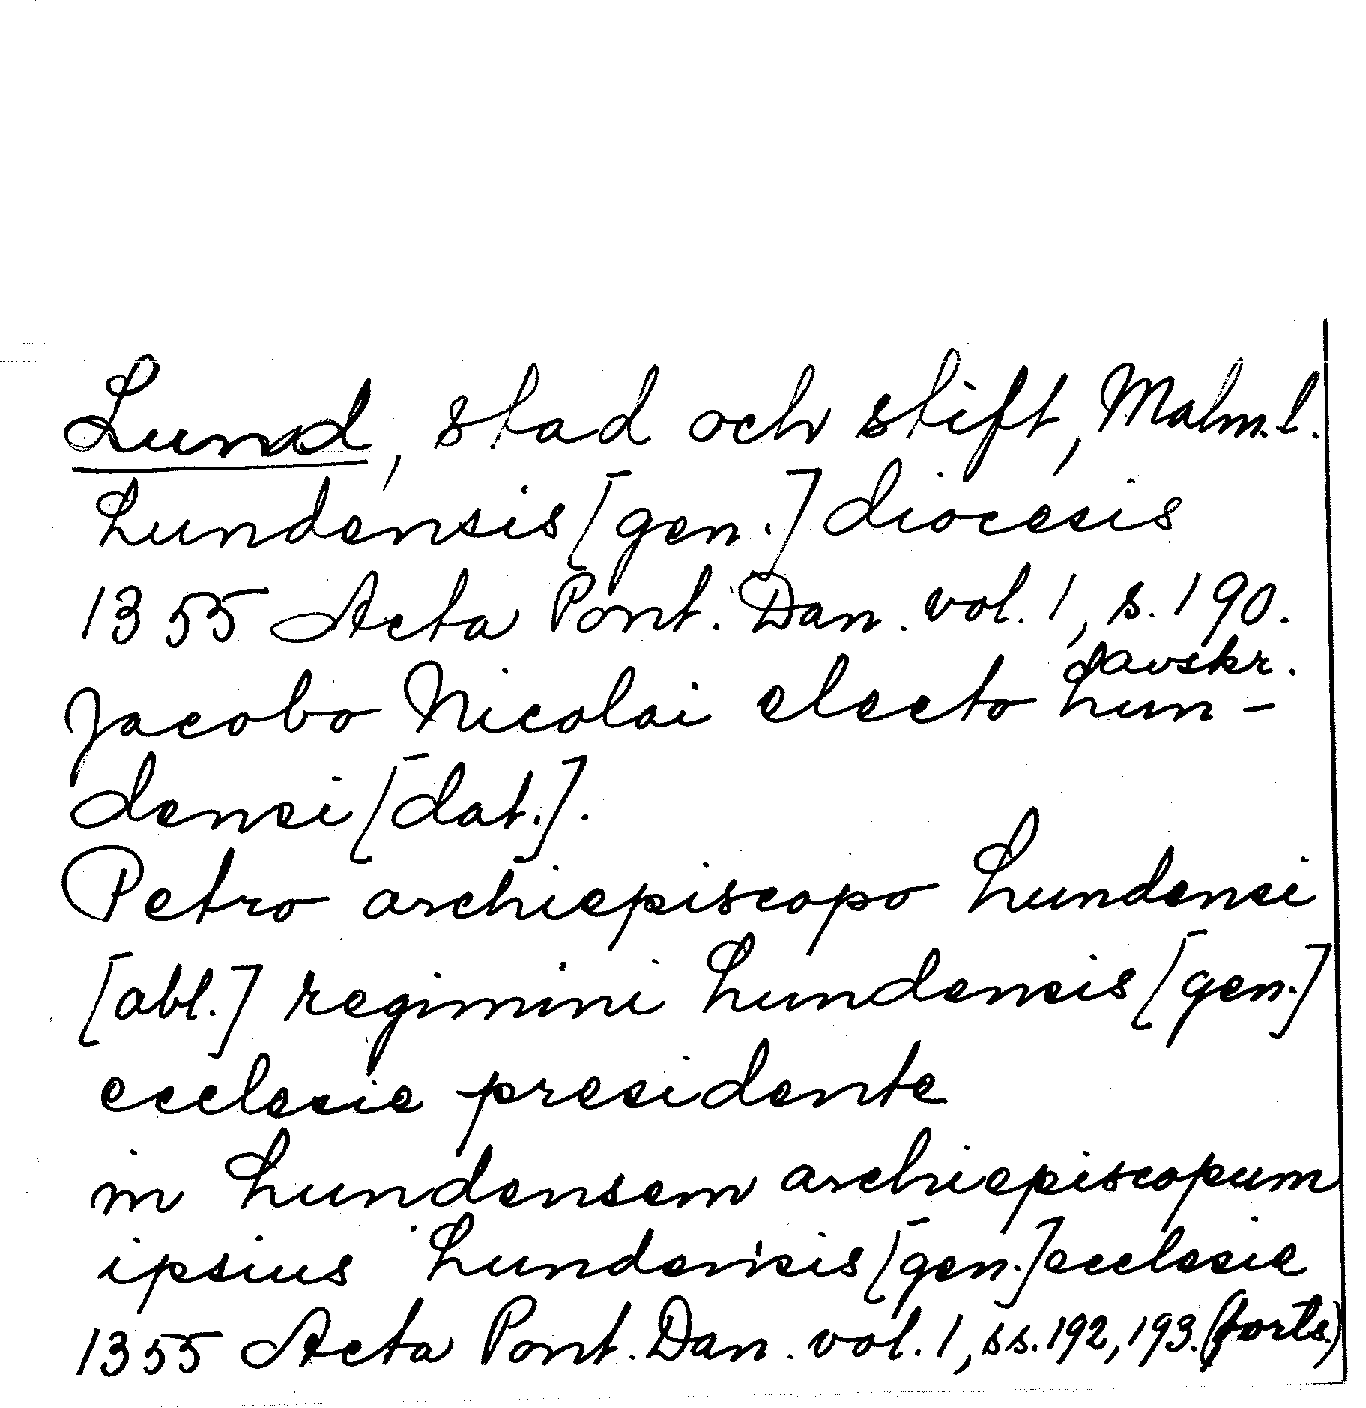 Lund, stad och stift, Malm.l.
Lundensis [gen.] diocesis
1355 Acta Pont. Dan. vol. 1, s. 190.
avskr.
Jacobo Nicolai electo Lun-
densi [dat.].
Petro archiepiscopo Lundensi
[abl.] regimini Lundensis [gen.]
ecclesie presidente
in Lundensem archiepiscopum
ipsius Lundensis [gen.] ecclesie
1355 Acta Pont. Dan. vol. 1, ss. 192, 193. (forts)